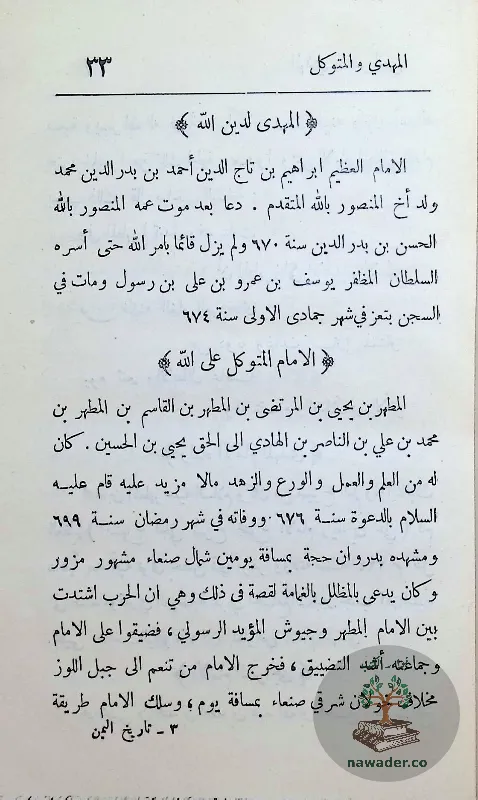 المهدي والمتوكل ٣٣
﴿ المهدى لدين الله ﴾
الامام العظيم ابراهيم بن تاج الدين أحمد بن بدر الدين محمد
ولد أخ المنصور بالله المتقدم . دعا بعد موت عمه المنصور بالله
الحسن بن بدر الدين سنة ٦٧٠ ولم يزل قائما بامر الله حتى أسره
السلطان المظفر يوسف بن عمرو بن على بن رسول ومات في
السجن بتعز في شهر جمادى الاولى سنة ٦٧٤
﴿ الامام المتوكل على الله ﴾
المطهر بن يحيى بن المرتضى بن المطهر بن القاسم بن المطهر بن
محمد بن علي بن الناصر بن الهادي الى الحق يحيى بن الحسين . كان
له من العلم والعمل والورع والزهد مالا مزيد عليه قام عليه
السلام بالدعوة سنة ٦٧٦ ووفاته في شهر رمضان سنة ٦٩٩
ومشهده بدروان حجة بمسافة يومين شمال صنعاء مشهور مزور
وكان يدعى بالمظلل بالغمامة لقصة في ذلك وهي ان الحرب اشتدت
بين الامام المطهر وجيوش المؤيد الرسولي ، فضيقوا على الامام
وجماعته أشد التضييق ، فخرج الامام من تنعم الى جبل اللوز
مخلاف خولان شرقي صنعاء بمسافة يوم ، وسلك الامام طريقة
٣ - تاريخ اليمن
nawader.co